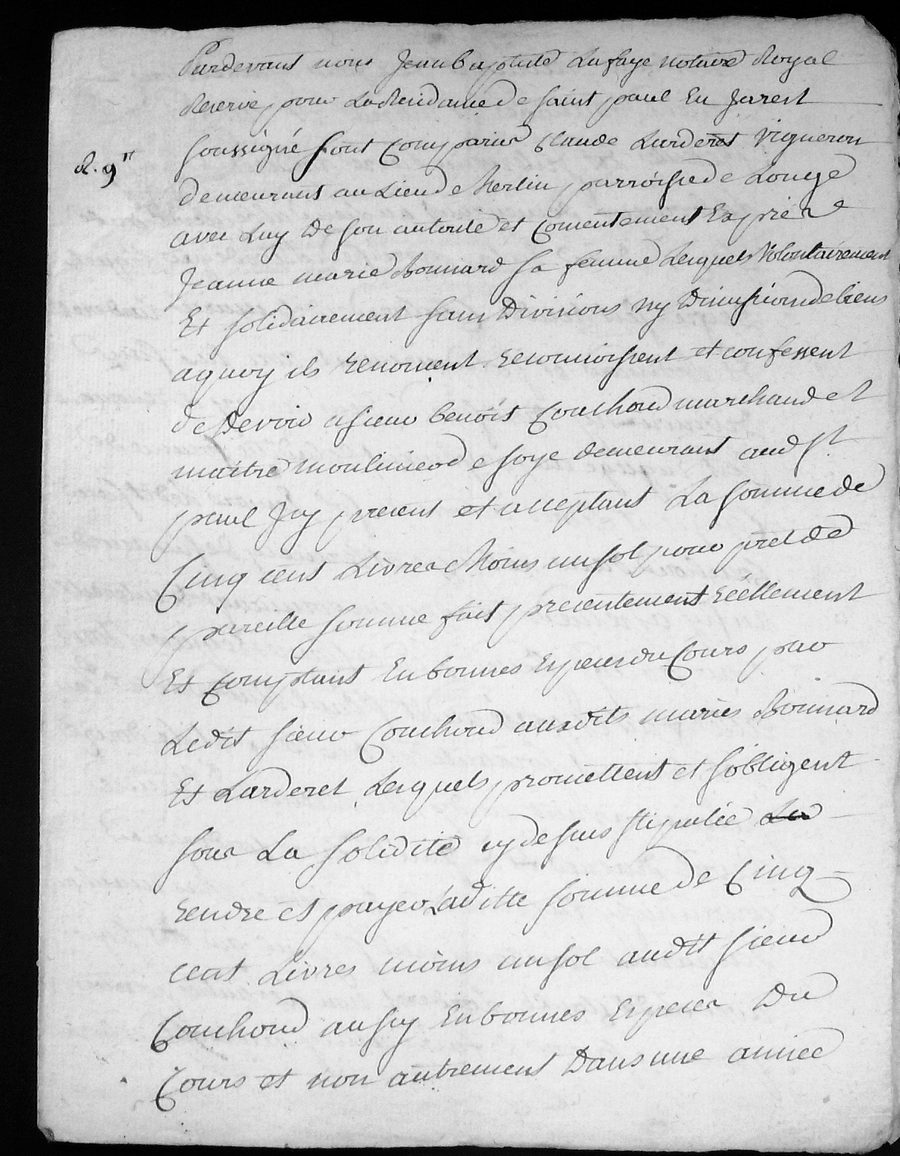 Pardevant nous Jean baptiste Lafaye notaire Royal
Reservé pour La Residance de saint paul En Jarest
soussigné sont comparus Claude Larderet vigneron
demeurant au Lieu de Merlin parroisse de Longe
avec Luy de son autorité et consentement Expres
Jeanne marie Bonnard sa femme Lesquels volontairement
Et solidairement sans Divisions ny Dimission de biens
aquoy ils renoncent reconnoissent et confessent
de devoir a sieur benoist Couchoud marchand et
maitre moulinier de soye demeurant aud st
paul Icy present et acceptant La somme de
Cinq cent Livres Moins un sol pour pret de
pareille somme fait presentement réellement
Et Comptant En bonnes Especes du Cours par
Ledit sieur Couchoud auxdits mariés Bonnard
Et Larderet Lesquels promettent et s'obligent
sous La solidité cy dessus stipulée
rendre et payer Laditte somme de Cinq
cent Livres moins un sol audit sieur
Couchoud aussy En bonnes Especes Du
Cours et non autrement Dans une année